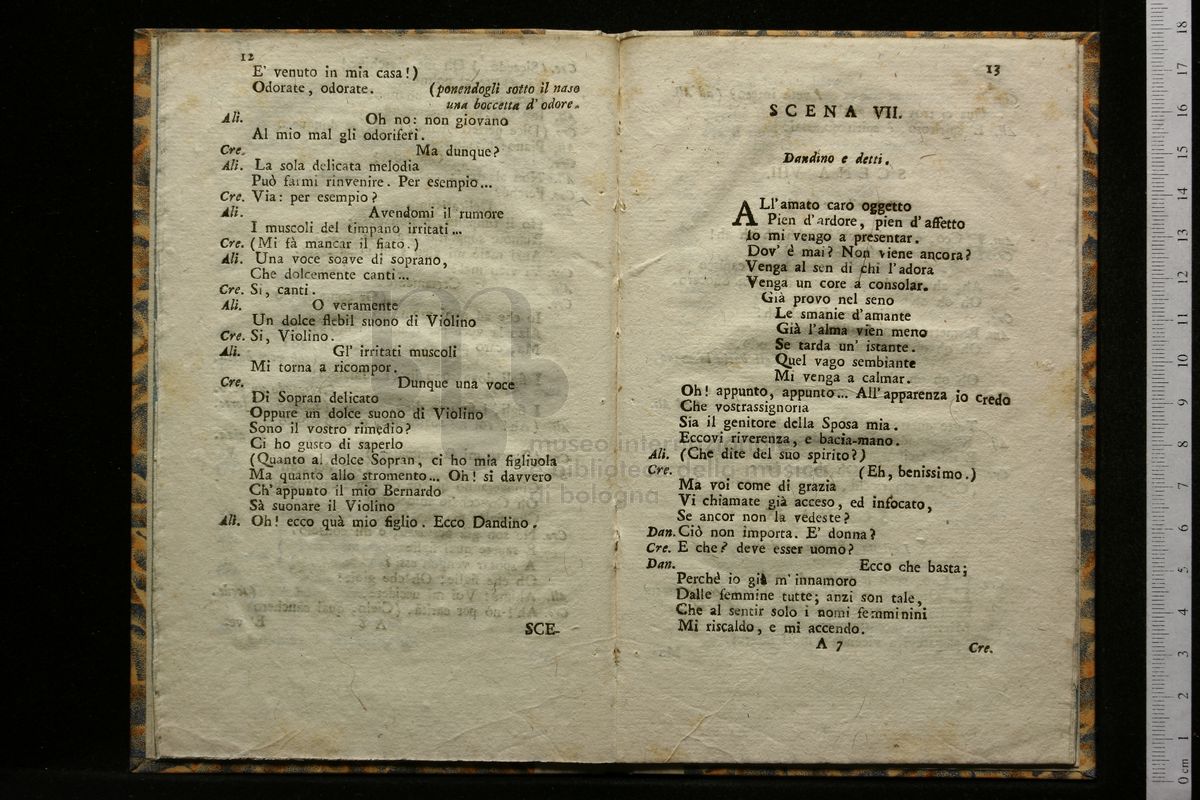 12
E' venuto in mia casa!)
Odorate, odorate. (ponendogli sotto il naso
una boccetta d'odore.
Ali. Oh no: non giovano
Al mio mal gli odoriferi.
Cre. Ma dunque?
Ali. La sola delicata melodia
Può farmi rinvenire. Per esempio...
Cre. Via: per esempio?
Ali. Avendomi il rumore
I muscoli del timpano irritati...
Cre. (Mi fà mancar il fiato.)
Ali. Una voce soave di soprano,
Che dolcemente canti...
Cre. Si, canti.
Ali. O veramente
Un dolce flebil suono di Violino
Cre. Si, Violino.
Ali. Gl' irritati muscoli
Mi torna a ricompor.
Cre. Dunque una voce
Di Sopran delicato
Oppure un dolce suono di Violino
Sono il vostro rimedio?
Ci ho gusto di saperlo
(Quanto al dolce Sopran, ci ho mia figliuola
Ma quanto allo stromento... Oh! si davvero
Ch'appunto il mio Bernardo
Sà suonare il Violino
Ali. Oh! ecco quà mio figlio. Ecco Dandino.
SCE-
13
SCENA VII.
Dandino e detti.
ALl'amato caro oggetto
Pien d'ardore, pien d'affetto
Io mi vengo a presentar.
Dov' è mai? Non viene ancora?
Venga al sen di chi l'adora
Venga un core a consolar.
Già provo nel seno
Le smanie d'amante
Già l'alma vien meno
Se tarda un' istante.
Quel vago sembiante
Mi venga a calmar.
Oh! appunto, appunto... All'apparenza io credo
Che vostrassignoria
Sia il genitore della Sposa mia.
Eccovi riverenza, e bacia-mano.
Ali. (Che dite del suo spirito?)
Cre. (Eh, benissimo.)
Ma voi come di grazia
Vi chiamate già acceso, ed infocato,
Se ancor non la vedeste?
Dan. Ciò non importa. E' donna?
Cre. E che? deve esser uomo?
Dan. Ecco che basta;
Perchè io già m'innamoro
Dalle femmine tutte; anzi son tale,
Che al sentir solo i nomi femminini
Mi riscaldo, e mi accendo.
A 7
Cre.
museo internazionale
biblioteca della musica
di bologna
0 cm 1 2 3 4 5 6 7 8 9 10 11 12 13 14 15 16 17 18